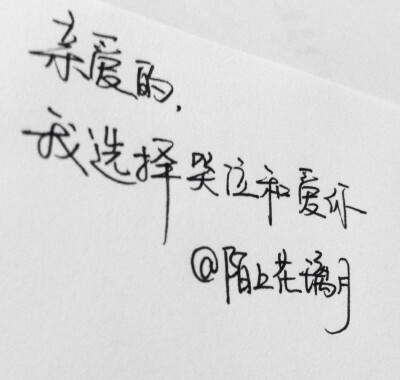 亲爱的,
我选择哭泣和爱你
@陌上花漓月